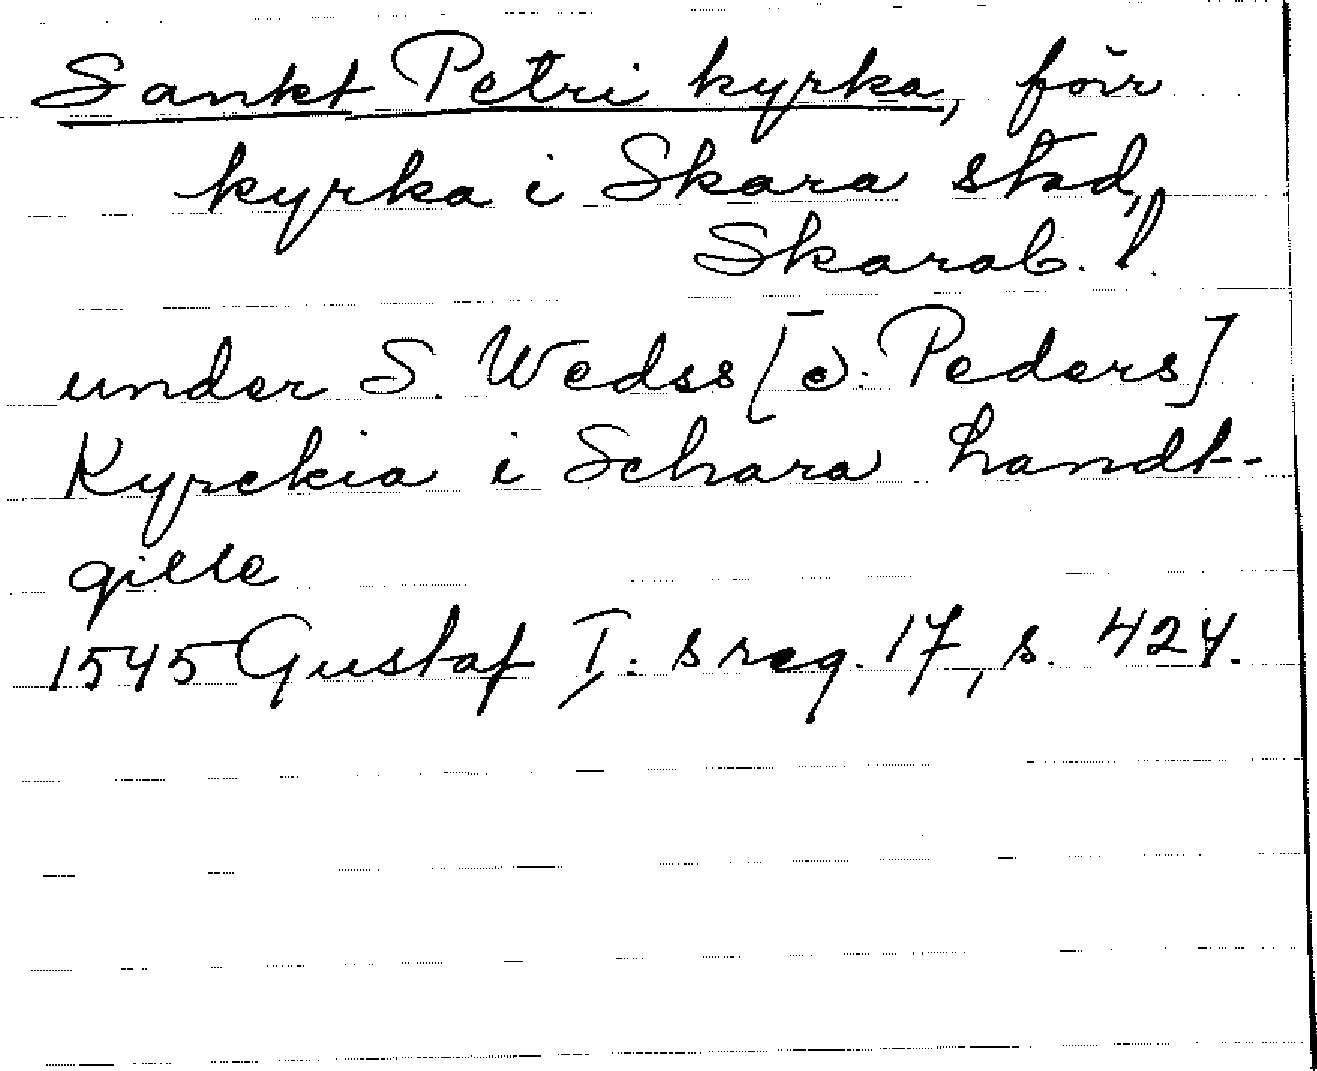 Sankt Petri kyrka, förr
kyrka i Skara stad,
Skarab. l.
under S. Wedss [ɔ: Peders]
Kyrckia i Schara handt-
gille
1545 Gustaf I:s reg. 17, s. 424.